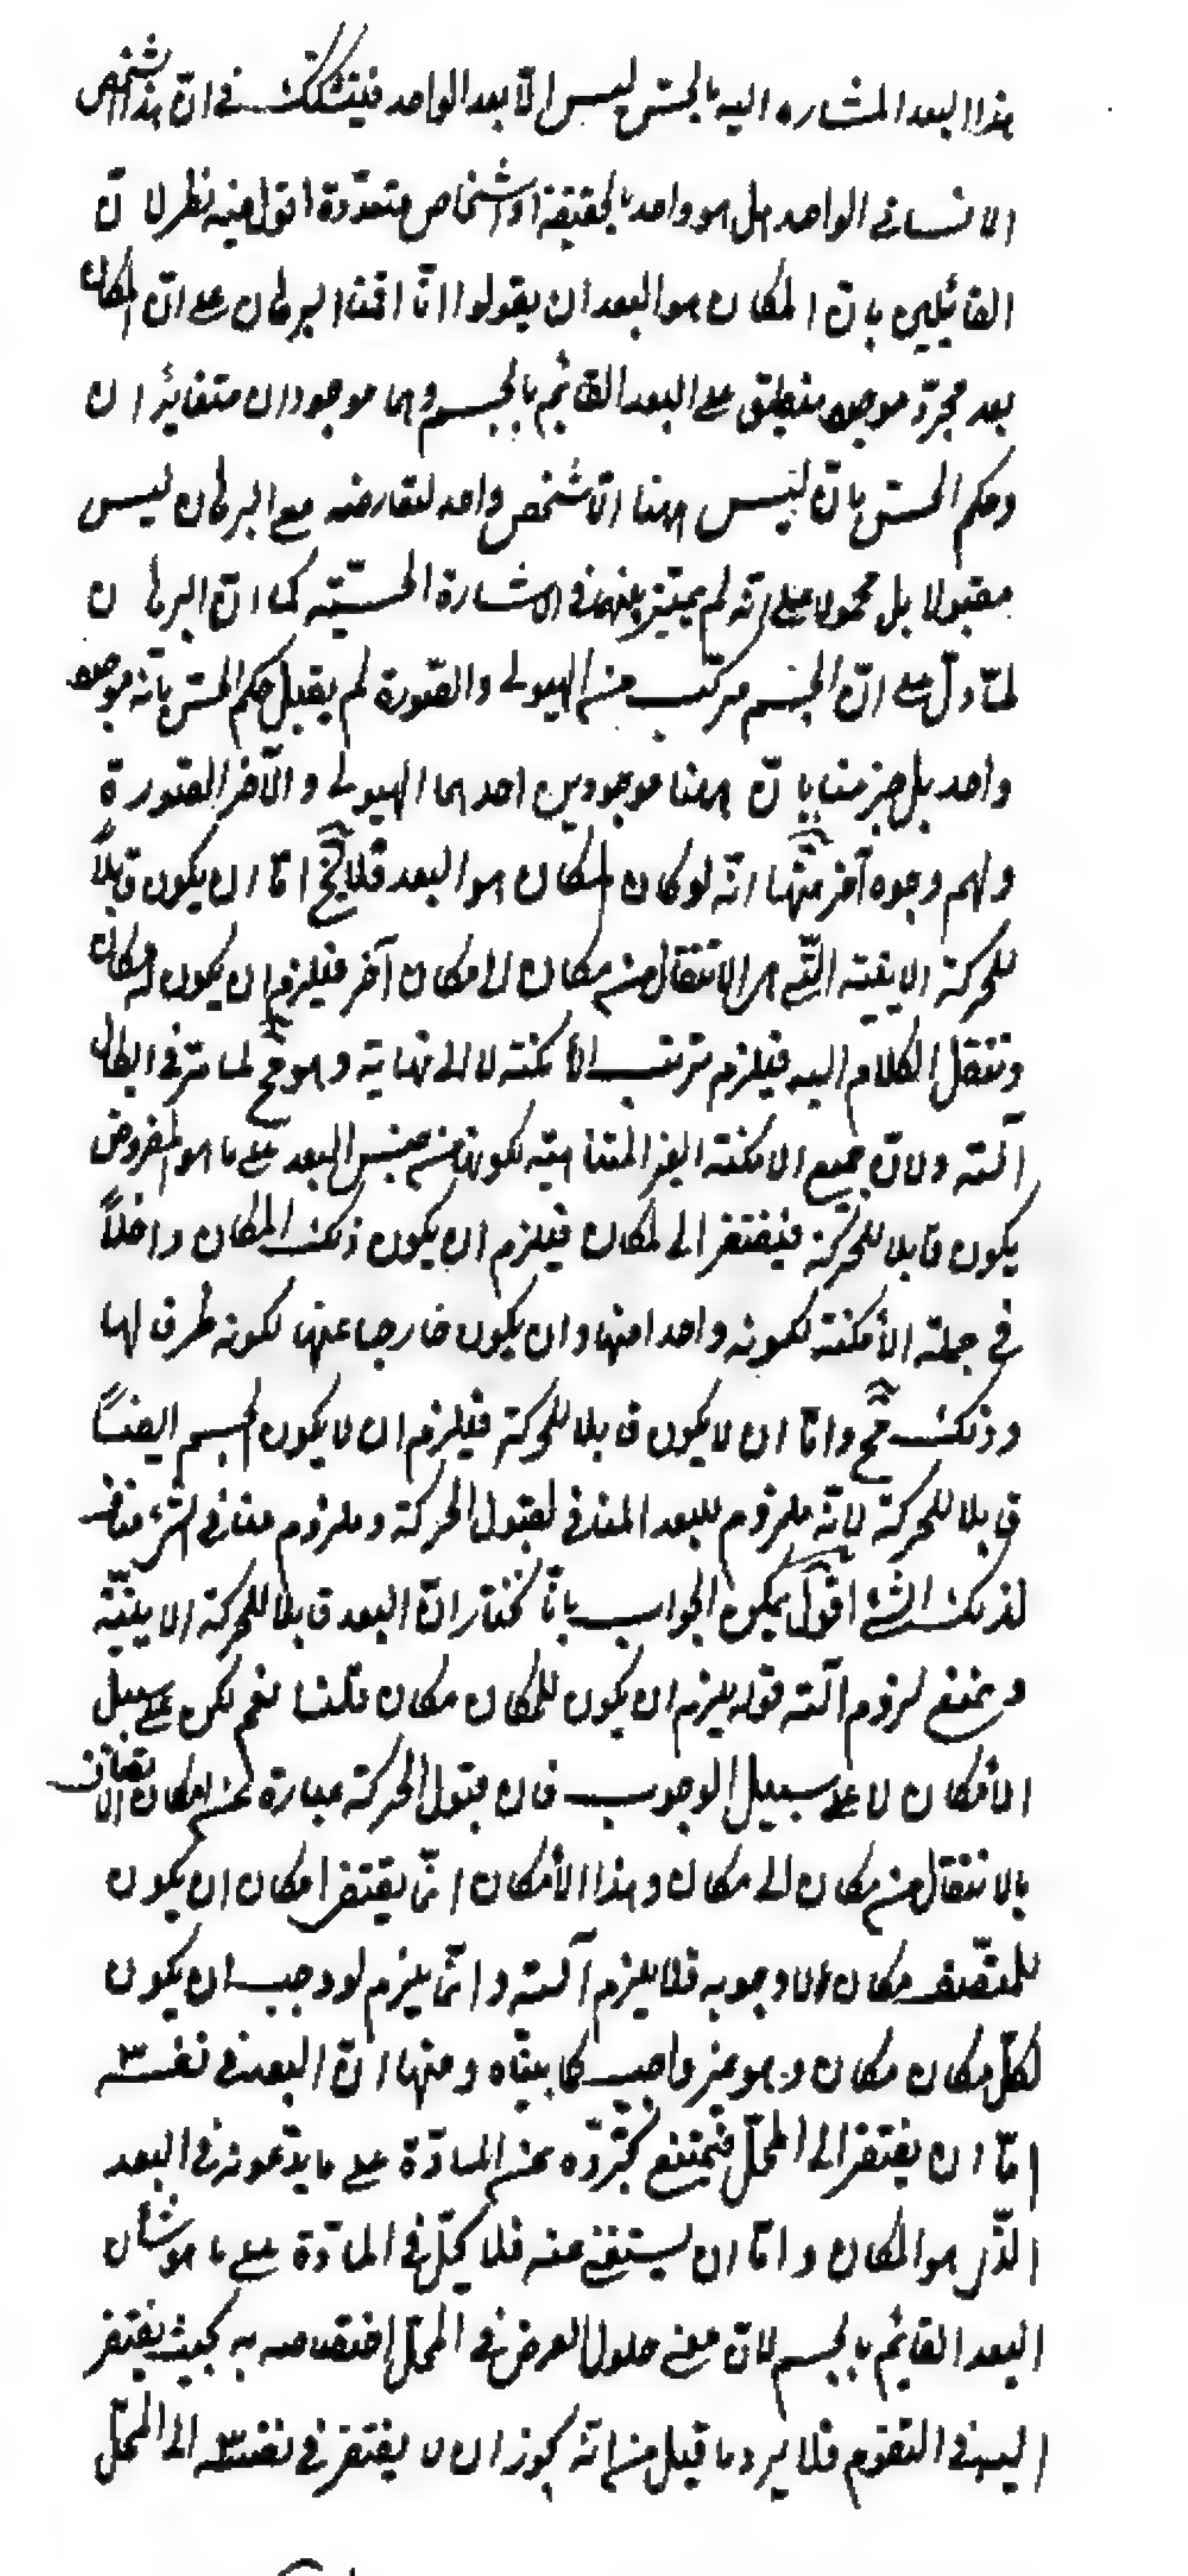 هذا البعد المشاره اليه بالحسّ ليس الّا بعد الواحد فيتشكك فى انّ هذا الشخص
الانسانى الواحد هل هو واحد بالحقيقة او اشخاص متعدّدة اقول فيه نظر لانّ
القائيلين بانّ المكان هو البعد ان يقولوا انّا اقمنا البرهان على انّ المكان
بعد مجرّد موجود منطبق على البعد القائيم بالجسم وهما موجودان متغايئران
وحكم الحسّ بانّ ليس ههنا الّا شخص واحد لتعارضه مع البرهان ليس
مقبولا بل محمولا على انّه لم يميّز بينهما فى الاشارة الحسّيّته كما انّ البرهان
لمّا دلّ على انّ الجسم مركّب من الهيولى والصّورة لم يقبل حكم الحسّ بانّه موجود
واحد بل جزمنا بانّ ههنا موجودين احدهما الهيولى والآخر الصّورة
ولهم وجوه آخر منها انّه لو كان المكان هو البعد فلا يخ امّا ان يكون قابلاً
للحركة الاينيّة الّتى هى الانتقال من مكان الى مكان آخر فيلزم ان يكون له مكان
وننقل الكلام اليه فيلزم ترتب الأمكنته لا الى نهاية وهو مح لما مرّ فى ابطال
آلته ولانّ جميع الامكنته الغير المتناهيته لكونها من جنس البعد على ما هو المفروض
يكون قابلا للحركة فيفتقر الى لمكان فيلزم ان يكون ذلك المكان داخلاً
فى جملته الأمكنته لكونه واحدا منها وان يكون خارجا عنها لكونه ظرفا لها
وذلك مح وامّا ان لا يكون قابلا للحركة فيلزم ان لا يكون الجسم ايضاً
قابلا للحركة لانّه ملزوم للبعد المنافى لقبول الحركة وملزوم منافى الشئ مناف
لذلك الشئ اقول يمكن الجواب بانّا نختار انّ البعد قابلا للحركة الاينيّة
ويمنع لزوم آلته قوله يلزم ان يكون للمكان مكان قلنا نعم لكن على سبيل
الأمكان لا على سبيل الوجوب فان قبول الحركة عبارة عن امكان الاتّصاف
بالانتقال من مكان الى مكان وهذا الأمكان انّما يقتضى امكان ان يكون
للمتّصف مكان لا وجوبه فلا يلزم آلته وانّما يلزم لو وجب ان يكون
لكلّ مكان مكان وهو غير واجب كما بيّناه ومنها انّ البعد فى نفسه
امّا ان يفتقر الى المحلّ فيمتنع تجرّده عن المادّة على ما يدّعونه فى البعد
الّذى هو المكان وامّا ان يستغنى عنه فلا يحلّ فى المادّة على ما هو شأن
البعد القائيم بالجسم لانّ معنى حلول العرض فى المحلّ اختصاصه به بحيث يفتقر
اليه فى التقوم فلا يرد ما قيل من انّه يجوز ان لا يفتقر فى نفسه الى المحلّ